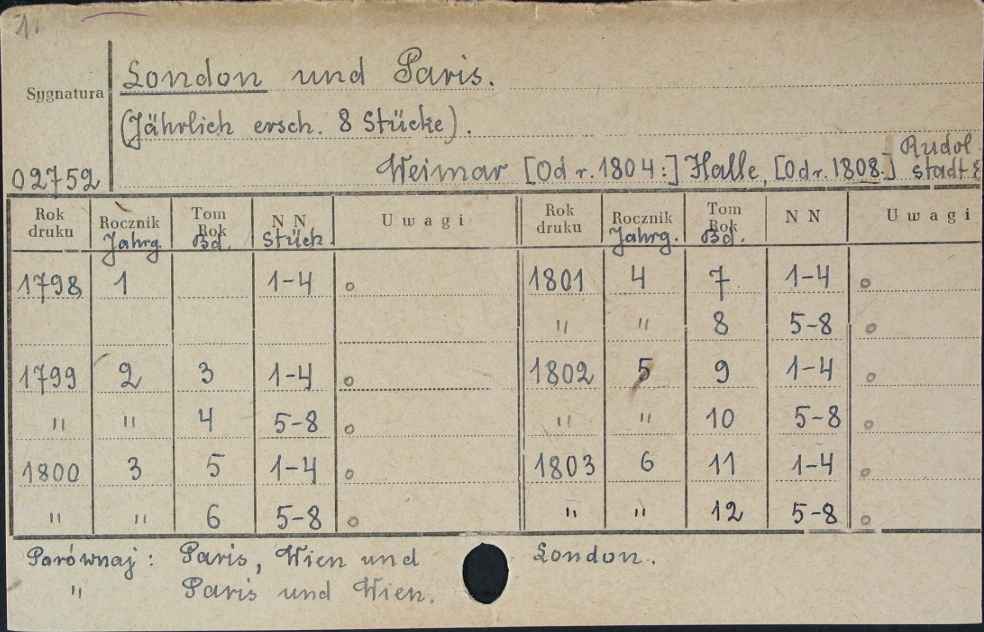 1.
London und Paris.
Sygnatura
(Jährlich ersch. 8 Stücke).
02752 Weimar [Od r. 1804:] Halle, [Od r. 1808.] Rudol
stadt
Rok druku Rocznik Jahrg. Tom Rok Bd. N N Stück Uwagi Rok druku Rocznik Jahrg. Tom Rok Bd. N N Uwagi
1798 1 1-4 o 1801 4 7 1-4 o
" " 8 5-8 o
1799 2 3 1-4 o 1802 5 9 1-4 o
" " 4 5-8 o " " 10 5-8 o
1800 3 5 1-4 o 1803 6 11 1-4 o
" " 6 5-8 o " " 12 5-8 o
Porównaj: Paris, Wien und London.
" Paris und Wien.